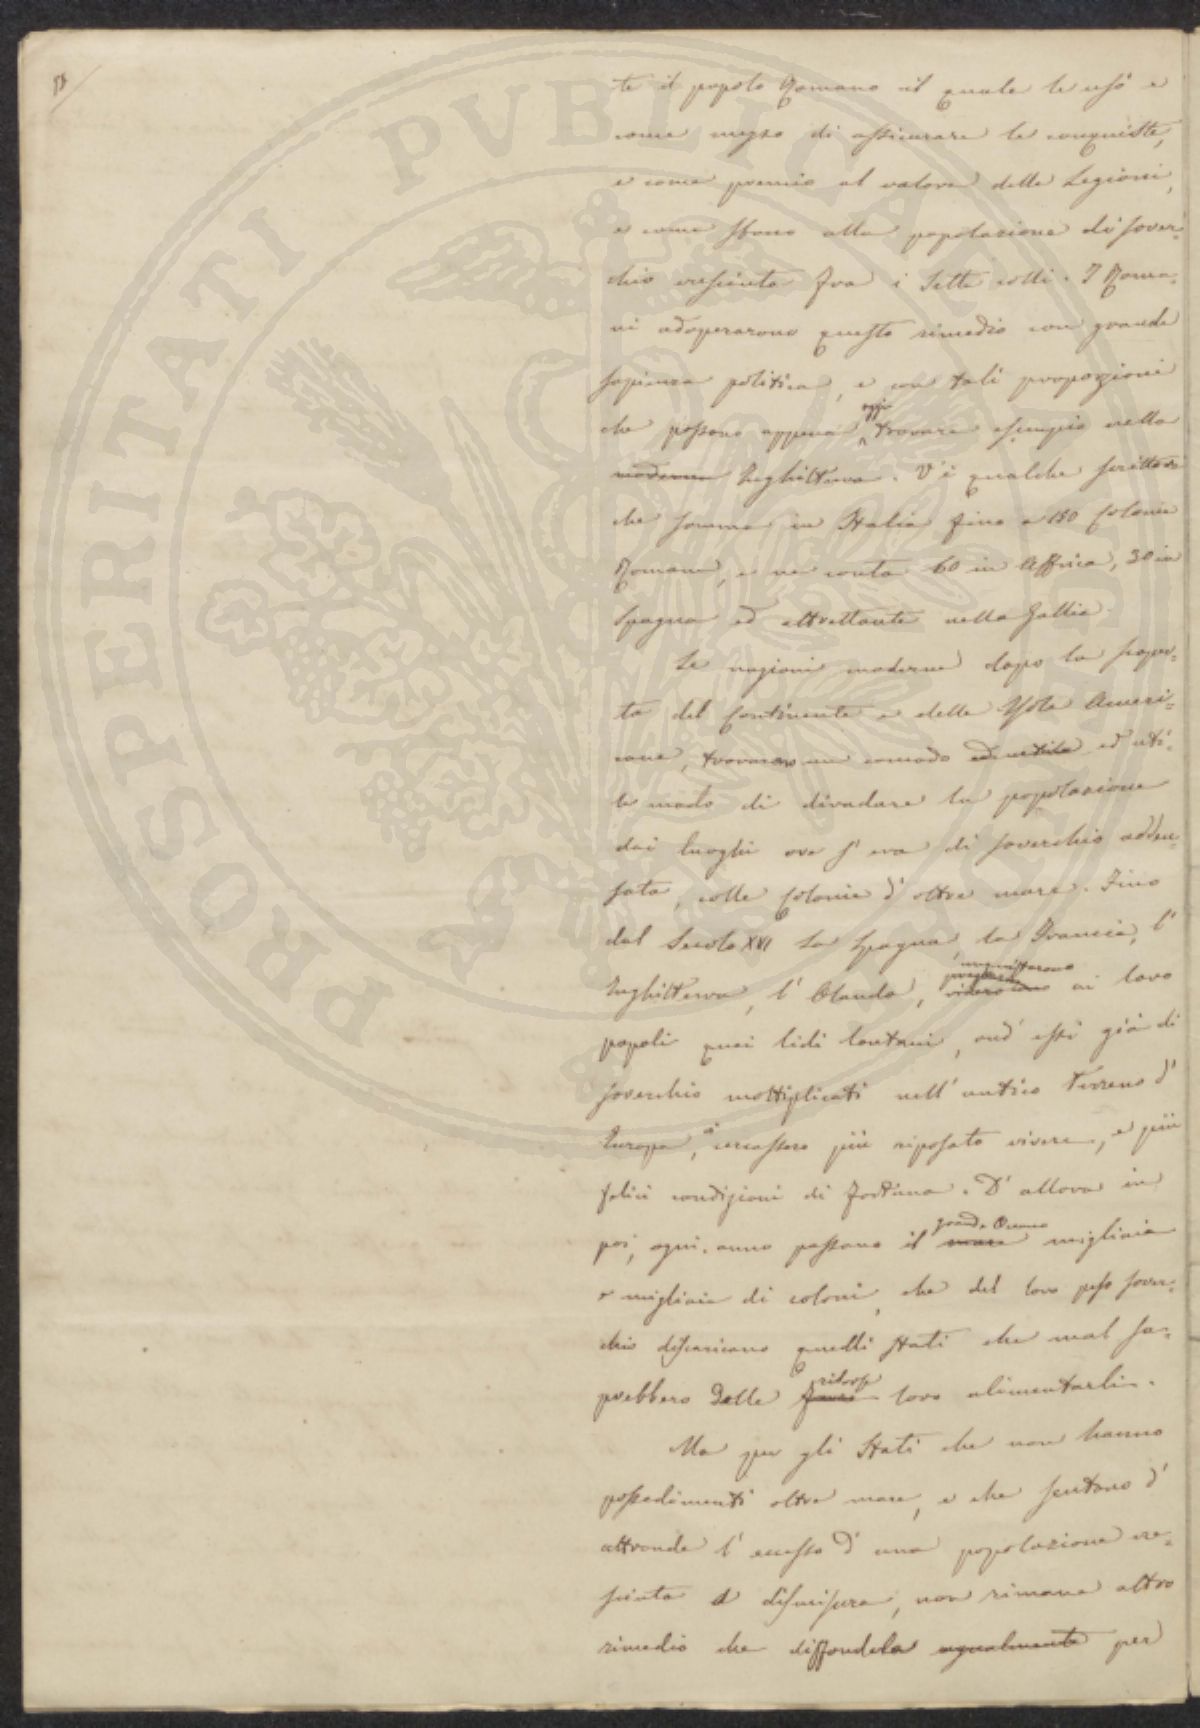 te il popolo Romano il quale le usò e
come mezzo di assicurare le conquiste,
e come premio al valore delle Legioni,
e come sfono alla popolazione di sover-
chio cresciuta fra i Sette colli. I Roma-
ni adoperarono questo rimedio con grande
sapienza politica, e con tali proporzioni
che possono appena oggi trovare esempio nella
moderna Inghilterra. V'è qualche scrittore
che somma in Italia fino a 150 Colonie
Romane, e ne conta 60 in Affrica, 30 in
Spagna ed altrettante nella Gallia.
Le nazioni moderne dopo la scoper-
ta del Continente e delle Isole Ameri-
cane, trovarono un comodo ed utile ed uti-
le modo di diradare la popolazione
dai luoghi ove s'era di soverchio adden-
sata, colle Colonie d'oltre mare. Fino
dal Secolo XVI la Spagna, la Francia, l'
Inghilterra, l'Olanda, ai loro
popoli quei lidi lontani, ond'essi già di
soverchio moltiplicati nell'antico Terreno d'
Europa, cercassero più riposato vivere, e più
felici condizioni di fortuna. D'allora in
poi, ogni anno passano il mare grande Oceano migliaia
e migliaia di coloni, che del loro peso sover-
chio discaricano quelli stati che mal sa-
prebbero delle risorse loro alimentarli.
Ma per gli Stati che non hanno
possedimenti oltre mare, e che sentono d'
altronde l'eccesso d'una popolazione cre-
sciuta a dismisura, non rimane altro
rimedio che diffonderla egualmente per